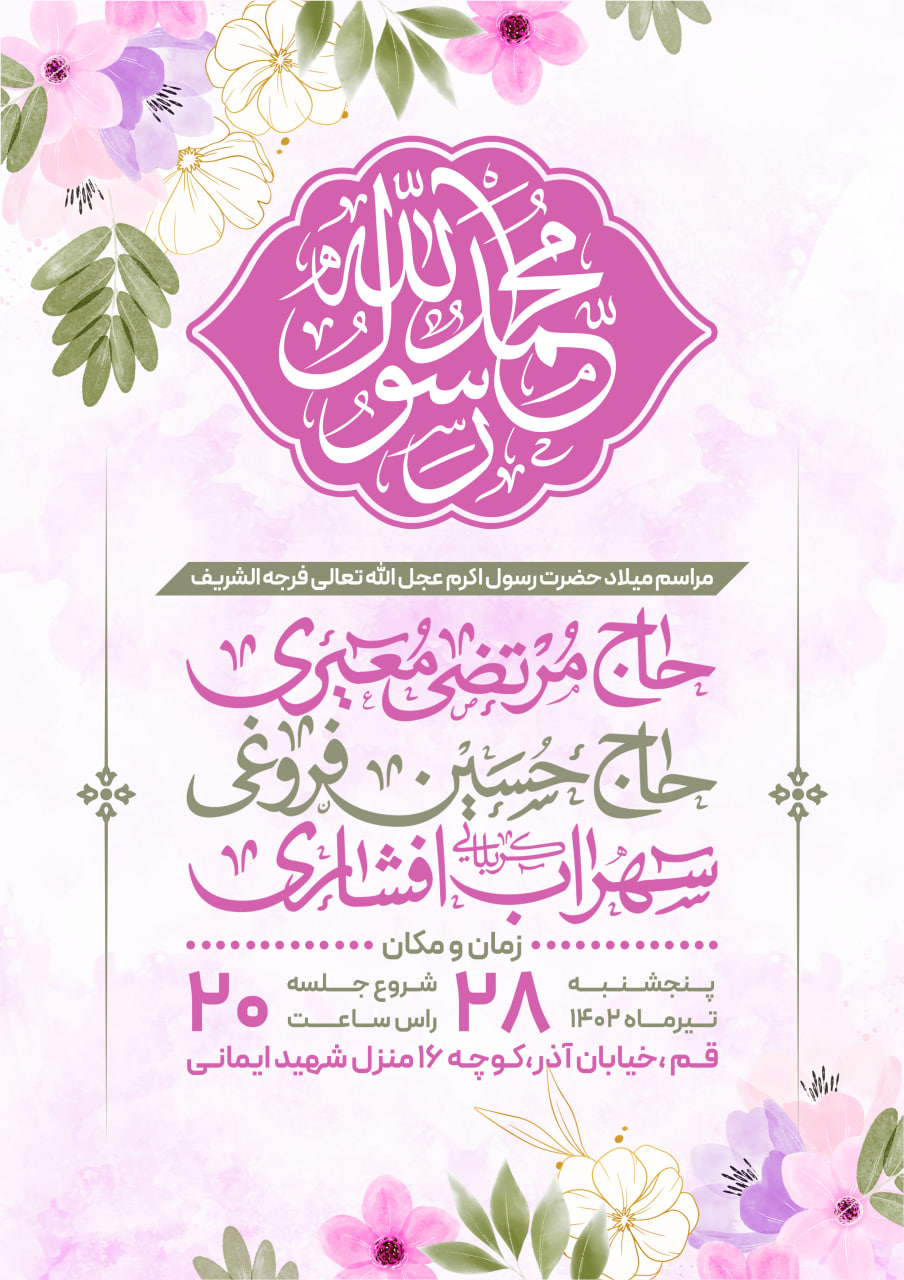 محمد رسول الله
مراسم میلاد حضرت رسول اکرم عجل الله تعالی فرجه الشریف
حاج مُرتضی مُعیری
حاج حُسین فروغی
کربلایی سهراب افشاری
زمان و مکان
پنجشنبه ۲۸ تیرماه ۱۴۰۲
شروع جلسه راس ساعت ۲۰
قم ،خیابان آذر،کوچه ۱۶ منزل شهید ایمانی